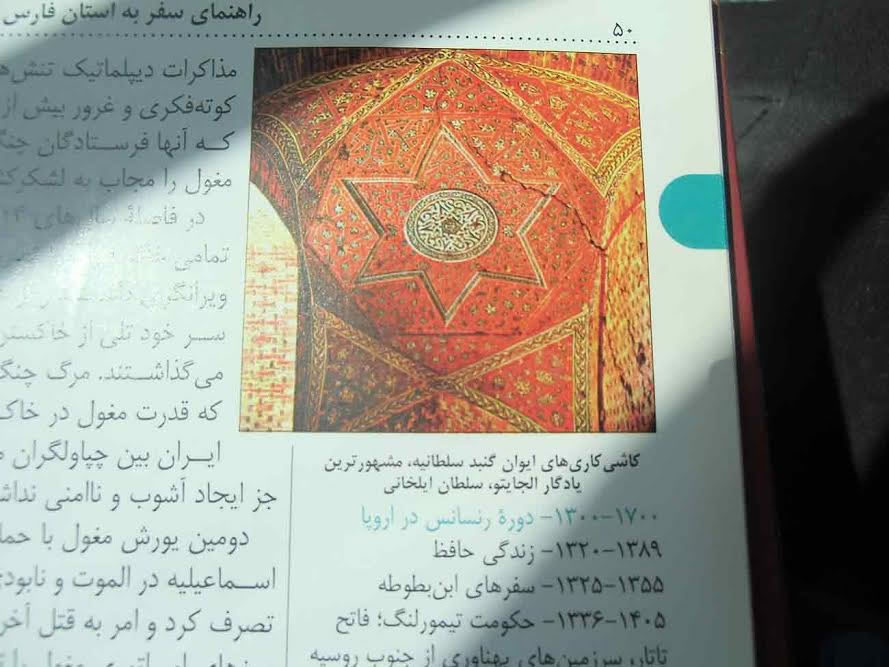 راهنمای سفر به استان فارس
۵۰
مذاکرات دیپلماتیک
کوته‌فکری و غرور بیش از
که آنها فرستادگان
مغول را مجاب به
در فاصلهٔ سال‌های
تمامی
سر خود تلی از خاکستر
می‌گذاشتند. مرگ
که قدرت مغول در
ایران بین چپاولگران
جز ایجاد آشوب و ناامنی
دومین یورش مغول با
اسماعیلیه در الموت و
تصرف کرد و امر به قتل
کاشی‌کاری‌های ایوان گنبد سلطانیه، مشهورترین
یادگار الجایتو، سلطان ایلخانی
۱۳۰۰-۱۷۰۰- دورهٔ رنسانس در اروپا
۱۳۲۰-۱۳۸۹- زندگی حافظ
۱۳۲۵-۱۳۵۵- سفرهای ابن‌بطوطه
۱۳۳۶-۱۴۰۵- حکومت تیمورلنگ؛ فاتح
تاتار، سرزمین‌های پهناوری از جنوب روسیه